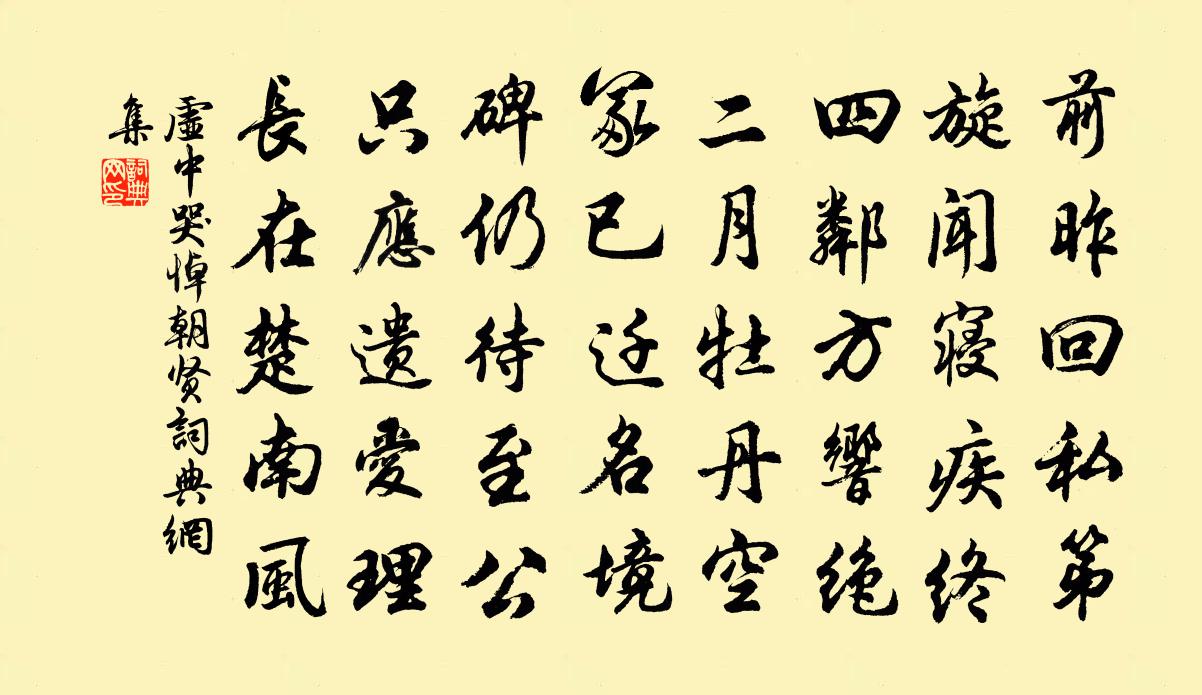 前昨回私第
旋闻寝疾终
四鄰方響绝
二月牡丹空
冢已迁名境
碑仍待至公
只應遗愛理
長在楚南風
虛中哭悼朝贤詞典網
集
詞典網印